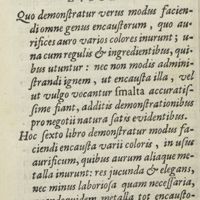 Quo demonſtratur verus modus facien-
di omne genus encauſtorum, quo au-
rifices auro varios colores inurunt; u-
na cum regulis & ingredientibus, qui-
bus utuntur: nec non modis admini-
ſtrandi ignem, ut encauſta illa, vel
ut vulgo vocantur ſmalta accuratiſ-
ſime fiant, additis demonſtrationibus
pro negotii natura ſatis evidentibus.
Hoc ſexto libro demonſtratur modus fa-
ciendi encauſta varii coloris, in uſus
aurificum, quibus aurum aliaque me-
talla inurunt: res jucunda & elegans,
nec minus laborioſa quam neceſſaria,
metalla tot encauſto-